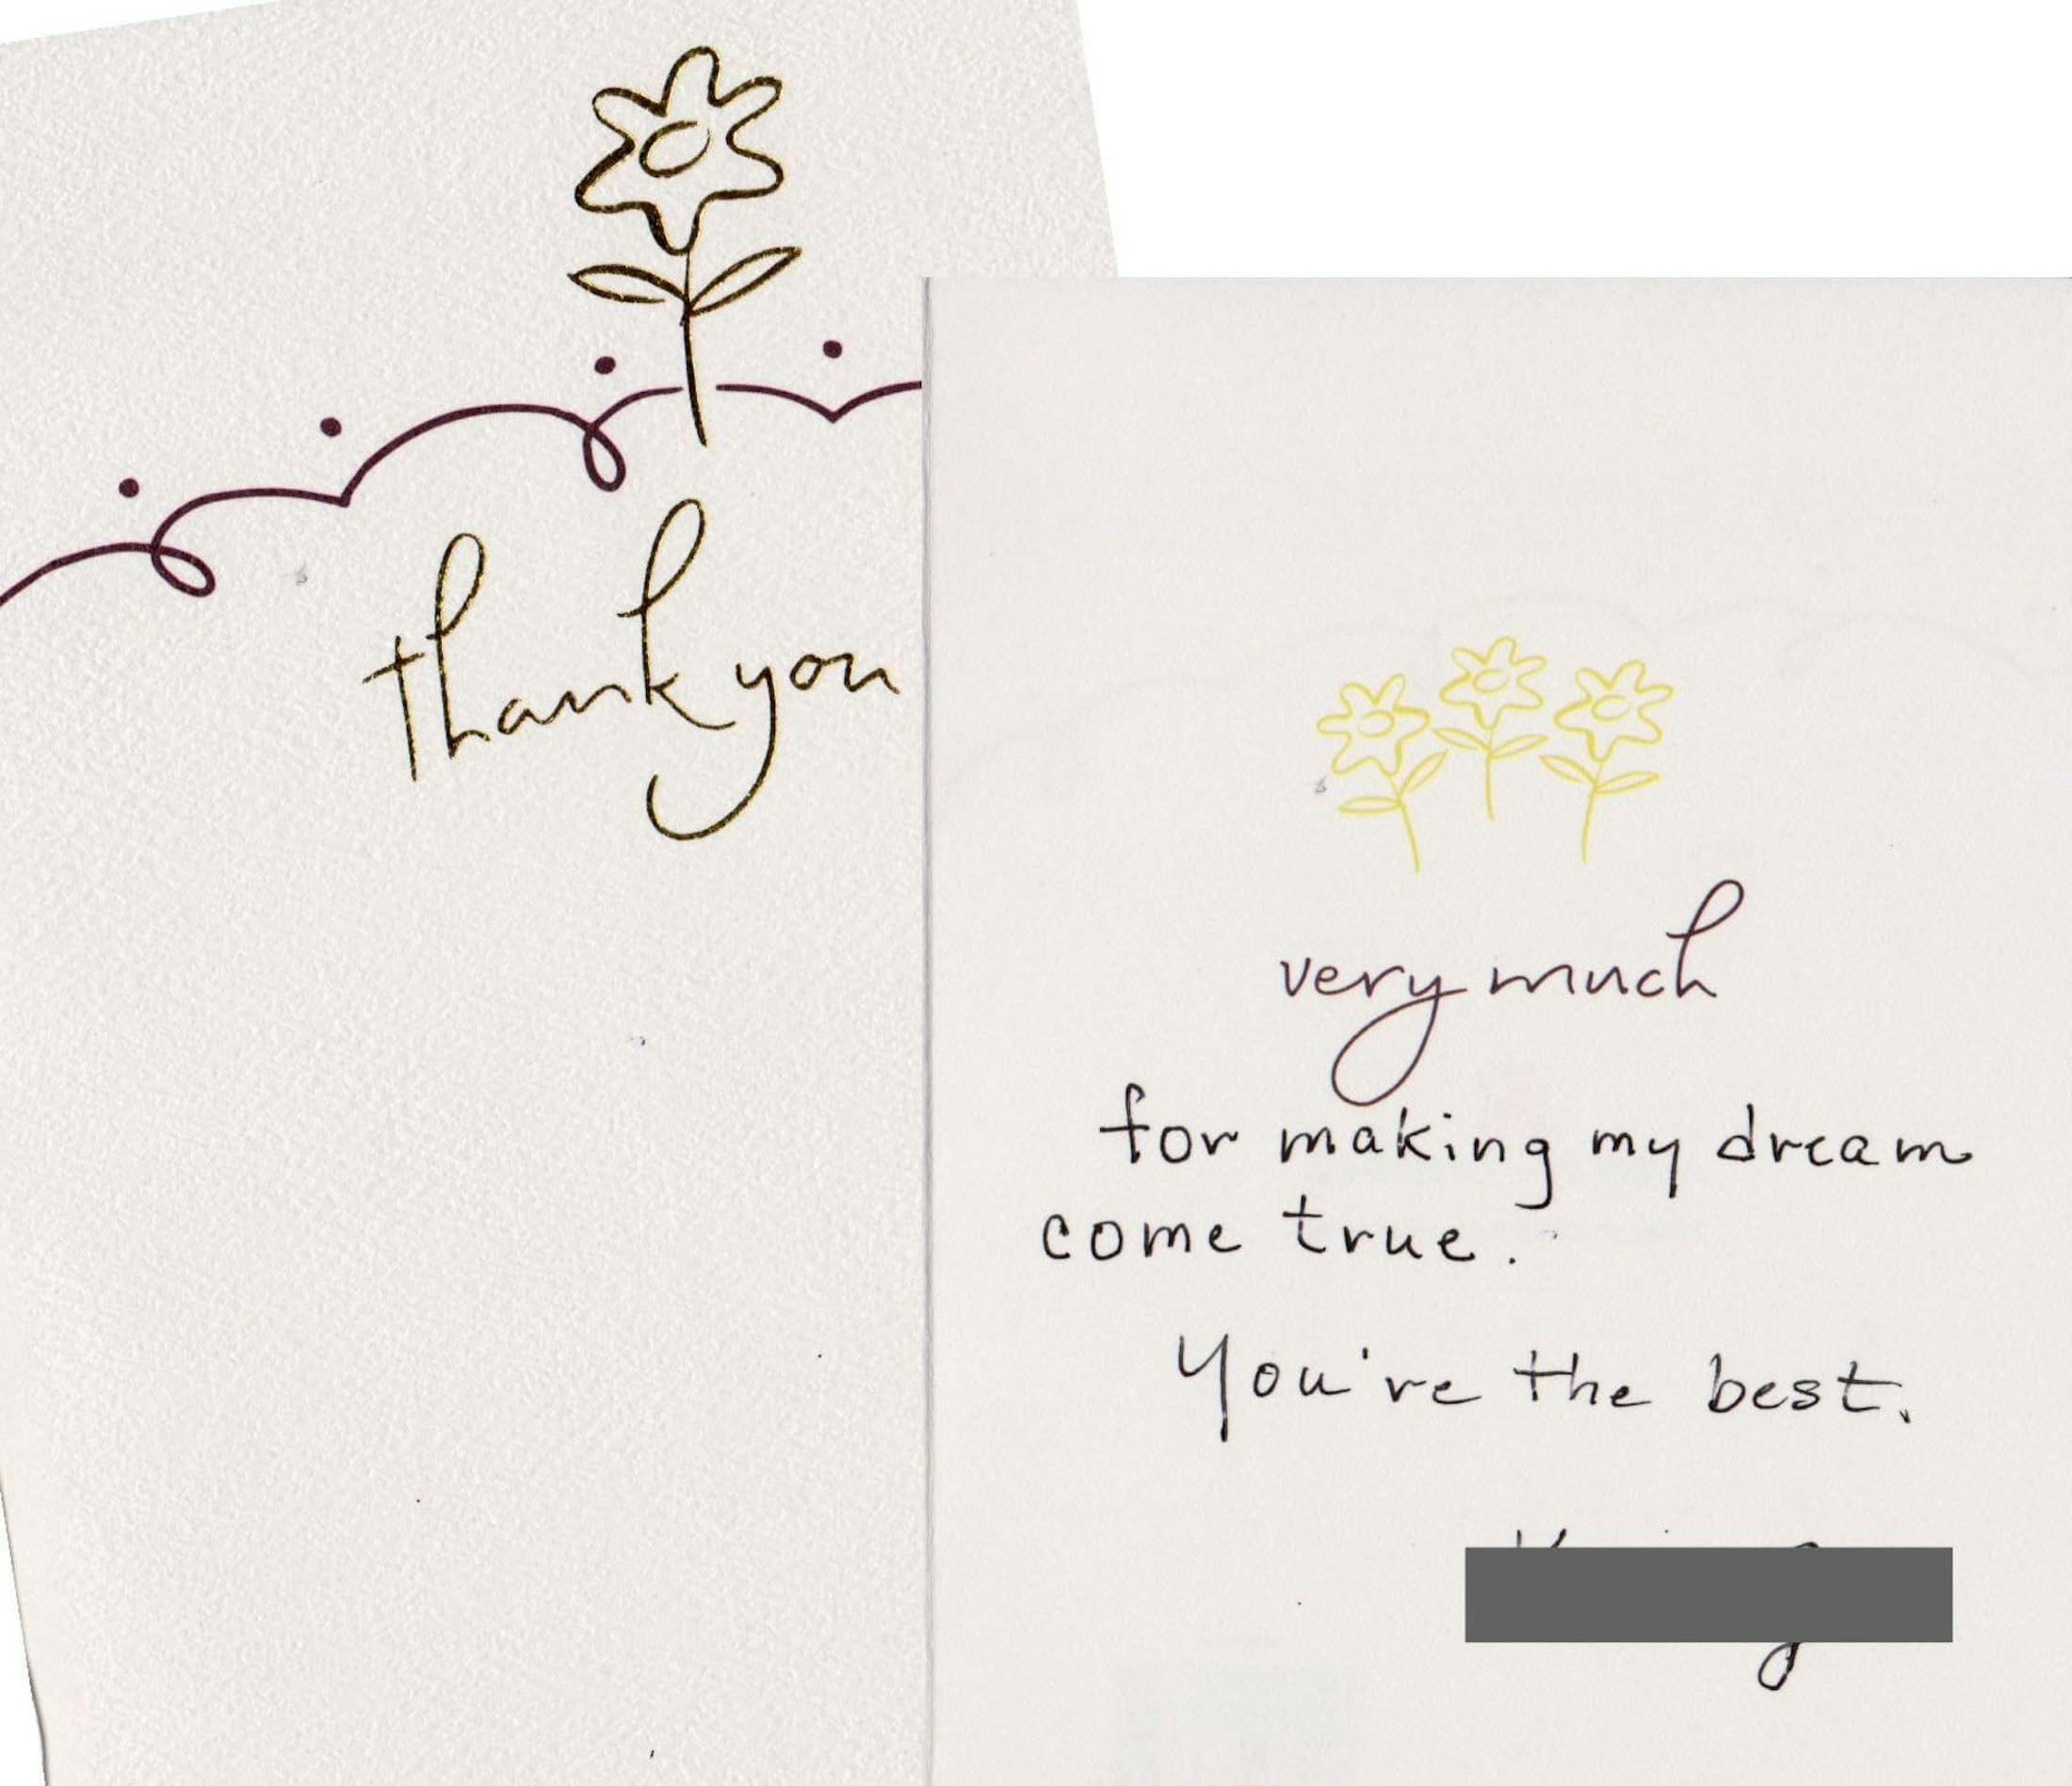 thank you
very much
for making my dream
come true.
You're the best.